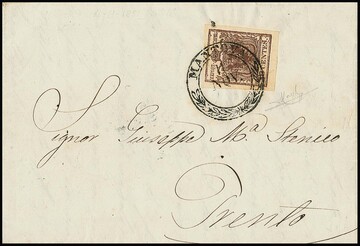 MANTOVA
Signor Giuseppe Mª Stenico
Trento